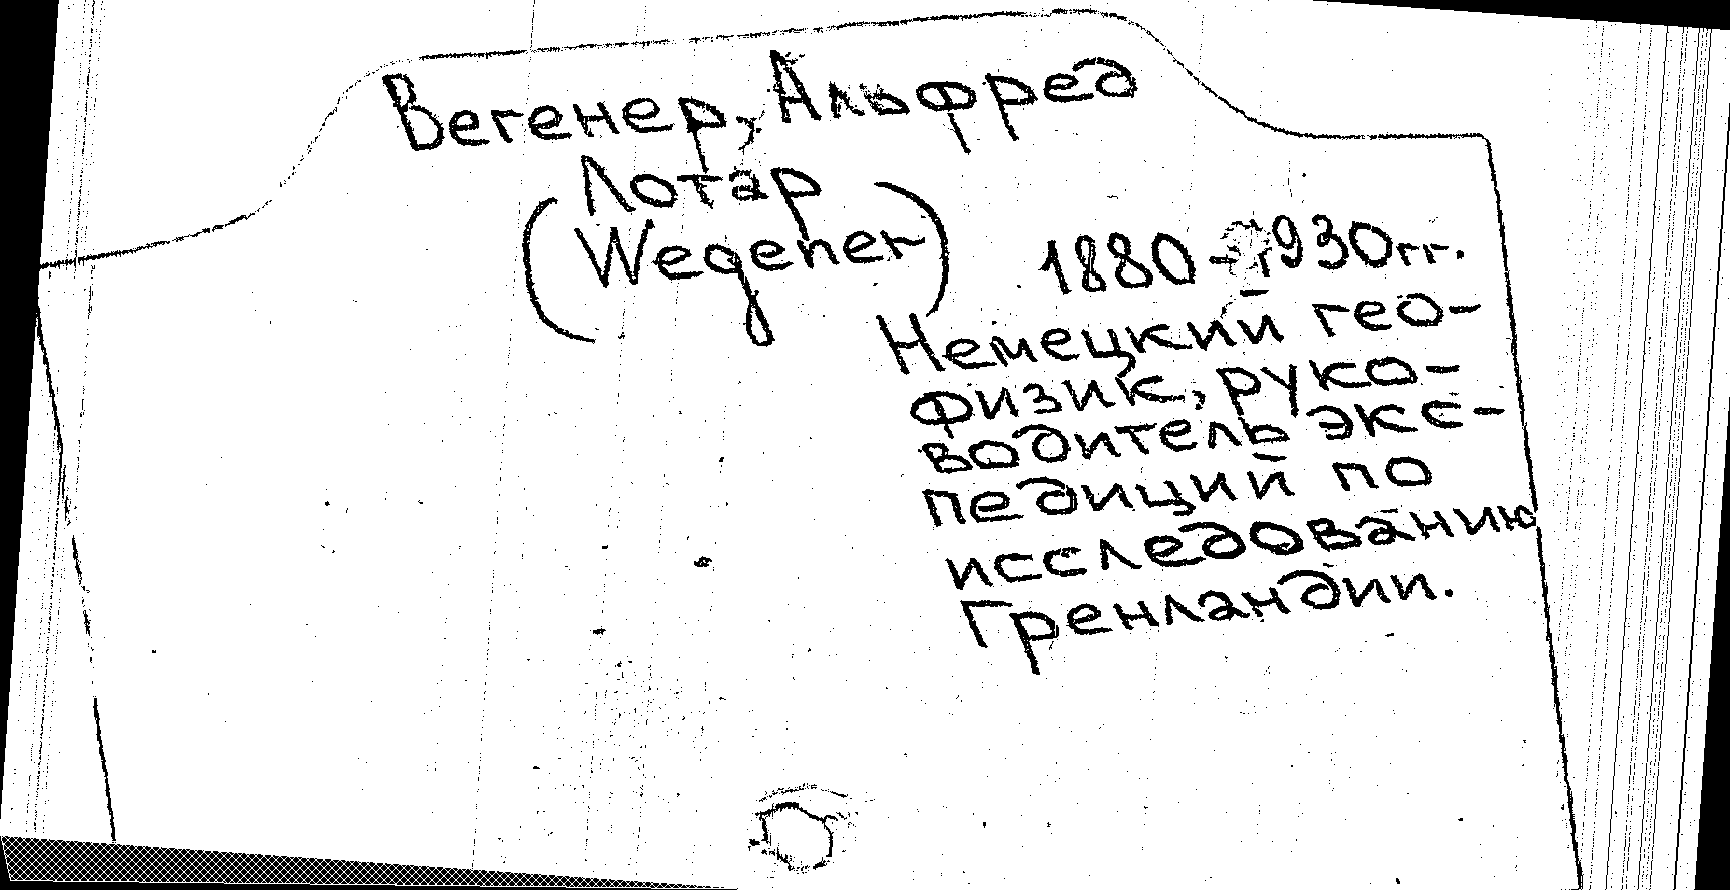 Вегенер, Альфред
Лотар
(Wegener)
1880-1930гг.
Немецкий гео-
физик, руко-
водитель экс-
педиций по
исследованию
Гренландии.